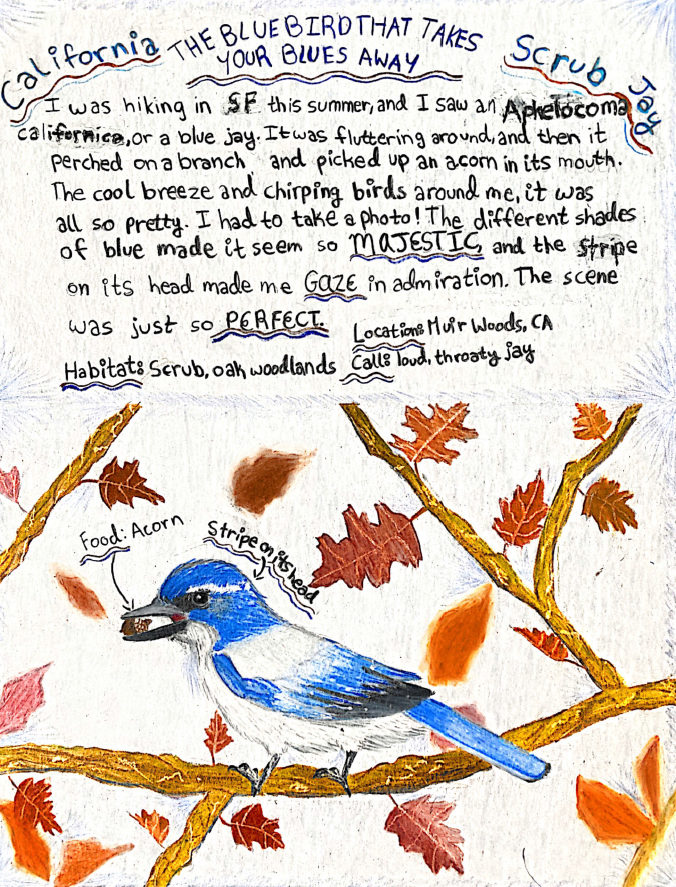 California
THE BLUE BIRD THAT TAKES
YOUR BLUES AWAY
Scrub Jay
I was hiking in SF this summer, and I saw an Aphelocoma
californica, or a blue jay. It was fluttering around, and then it
perched on a branch and picked up an acorn in its mouth.
The cool breeze and chirping birds around me, it was
all so pretty. I had to take a photo! The different shades
of blue made it seem so MAJESTIC, and the stripe
on its head made me GAZE in admiration. The scene
was just so PERFECT.
Location: Muir Woods, CA
Habitat: Scrub, oak woodlands
Call: loud, throaty jay
Food: Acorn
Stripe on its head